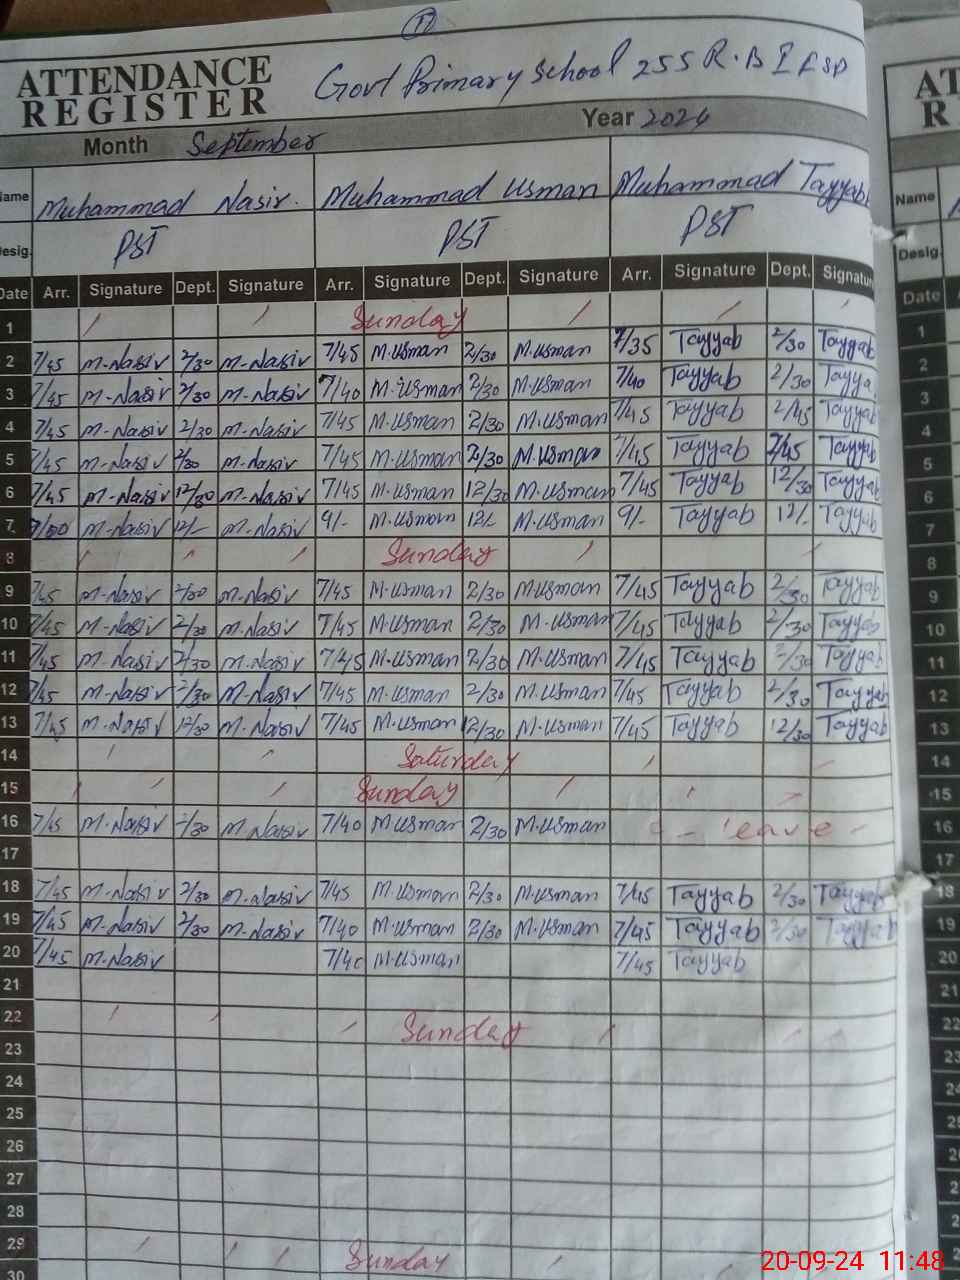 17
ATTENDANCE REGISTER Govt Primary School 255 R.B I FSD
Month September Year 2024
Name Muhammad Nasir. Muhammad Usman Muhammad Tayyab
Desig. PST PST PST
Date Arr. Signature Dept. Signature Arr. Signature Dept. Signature Arr. Signature Dept. Signature
1 Sunday
2 7/45 M-Nasir 2/30 M-Nasir 7/45 M.Usman 2/30 M.Usman 7/35 Tayyab 2/30 Tayyab
3 7/45 M-Nasir 2/30 M-Nasir 7/40 M.Usman 2/30 M.Usman 7/40 Tayyab 2/30 Tayya
4 7/45 M-Nasir 2/30 M-Nasir 7/45 M.Usman 2/30 M.Usman 7/45 Tayyab 2/45 Tayyab
5 7/45 M-Nasir 2/30 M-Nasir 7/45 M.Usman 2/30 M.Usman 7/45 Tayyab 2/45 Tayyab
6 7/45 M-Nasir 12/30 M-Nasir 7/45 M.Usman 12/30 M.Usman 7/45 Tayyab 12/30 Tayyab
7 M-Nasir 12/- M-Nasir 9/- M.Usman 12/- M.Usman 9/- Tayyab 12/- Tayyab
8 Sunday
9 7/45 M-Nasir 2/30 M-Nasir 7/45 M.Usman 2/30 M.Usman 7/45 Tayyab 2/30 Tayyab
10 7/45 M-Nasir 2/30 M-Nasir 7/45 M.Usman 2/30 M.Usman 7/45 Tayyab 2/30 Tayyab
11 7/45 M-Nasir 2/30 M-Nasir 7/45 M.Usman 2/30 M.Usman 7/45 Tayyab 2/30 Tayyab
12 7/45 M-Nasir 2/30 M-Nasir 7/45 M.Usman 2/30 M.Usman 7/45 Tayyab 2/30 Tayyab
13 7/45 M-Nasir 12/30 M-Nasir 7/45 M.Usman 12/30 M.Usman 7/45 Tayyab 12/30 Tayyab
14 Saturday
15 Sunday
16 7/45 M.Nasir 2/30 M.Nasir 7/40 M.Usman 2/30 M.Usman leave
17
18 7/45 M-Nasir 2/30 M-Nasir 7/45 M.Usman 2/30 M.Usman 7/45 Tayyab 2/30 Tayyab
19 7/45 M-Nasir 2/30 M-Nasir 7/40 M.Usman 2/30 M.Usman 7/45 Tayyab 2/30 Tayyab
20 7/45 M.Nasir 7/40 M.Usman 7/45 Tayyab
21
22 Sunday
23
24
25
26
27
28
29 Sunday
30
Name
Desig.
Date
1
2
3
4
5
6
7
8
9
10
11
12
13
14
15
16
17
18
19
20
21
22
23
20-09-24 11:48